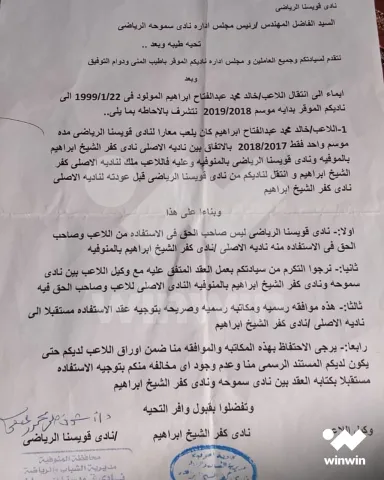 نادى قويسنا الرياضى
السيد الفاضل المهندس /رئيس مجلس اداره نادى سموحه الرياضى
تحيه طيبه وبعد ..
نتقدم لسيادتكم وجميع العاملين و مجلس اداره ناديكم الموقر باطيب المنى ودوام التوفيق
وبعد
ايماء الى انتقال اللاعب/خالد محمد عبدالفتاح ابراهيم المولود فى 1999/1/22 الى
ناديكم الموقر بدايه موسم 2019/2018 نتشرف بالاحاطه بما يلى..
1-اللاعب/خالد محمد عبدالفتاح ابراهيم كان يلعب معارا لنادى قويسنا الرياضى مده
موسم واحد فقط 2018/2017 بالاتفاق بين ناديه الاصلى نادى كفر الشيخ ابراهيم
بالموفيه ونادى قويسنا الرياضى بالمنوفيه وعليه فاللاعب ملك لناديه الاصلى كفر
الشيخ ابراهيم و انتقل لناديكم من نادى قويسنا الرياضى قبل عودته لناديه الاصلى
نادى كفر الشيخ ابراهيم
وبناءا على هذا
اولا:- نادى قويسنا الرياضى ليس صاحب الحق فى الاستفاده من اللاعب وصاحب
الحق فى الاستفاده منه ناديه الاصلى /نادى كفر الشيخ ابراهيم بالمنوفيه
ثانيا:- نرجوا التكرم من سيادتكم بعمل العقد المتفق عليه مع وكيل اللاعب بين نادى
سموحه ونادى كفر الشيخ ابراهيم بالمنوفيه النادى الاصلى للاعب وصاحب الحق فيه
ثالثا:- هذه موافقه رسميه ومكاتبه رسميه وصريحه بتوجيه عقد الاستفاده مستقبلا الى
ناديه الاصلى /نادى كفر الشيخ ابراهيم
رابعا:- يرجى الاحتفاظ بهذه المكاتبه والموافقه منا ضمن اوراق اللاعب لديكم حتى
يكون لديكم المستند الرسمى منا وعدم وجود اى مخالفه منكم بتوجيه الاستفاده
مستقبلا بكتابه العقد بين نادى سموحه ونادى كفر الشيخ ابراهيم
وتفضلوا بقبول وافر التحيه
نادى كفر الشيخ ابراهيم /نادى قويسنا الرياضى
محافظة المنوفية
مديرية الشباب والرياضة
winwin
winwin